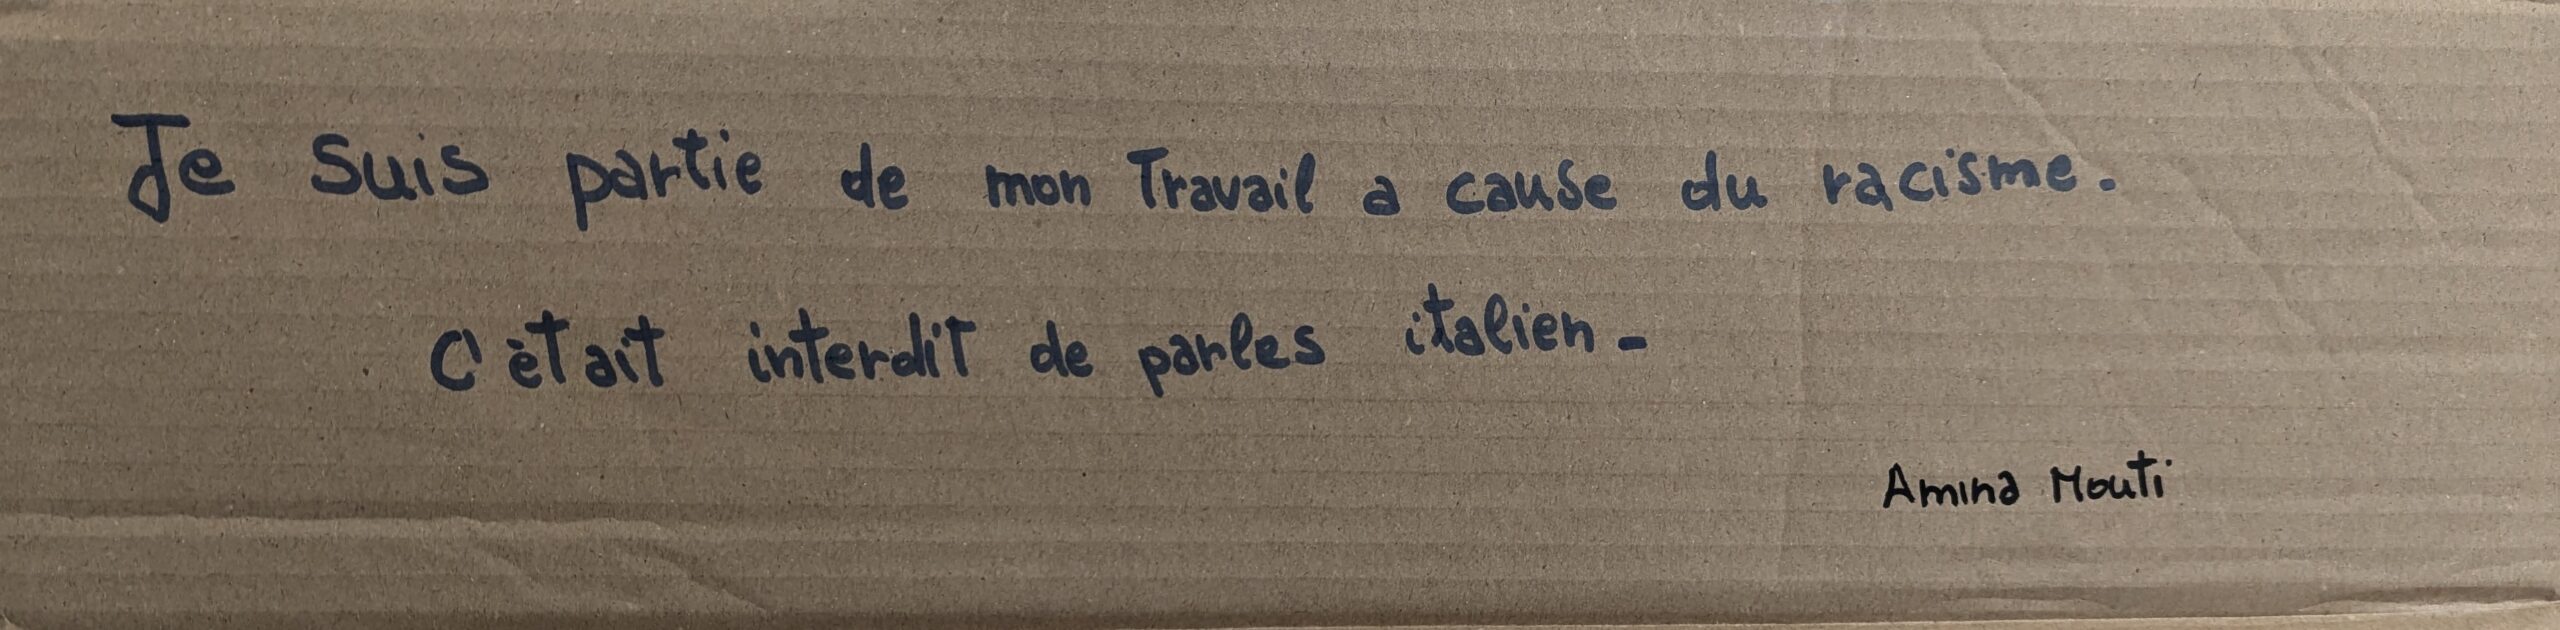 Je suis partie de mon Travail a cause du racisme.
C'ètait interdit de parles italien-
Amina Mouti